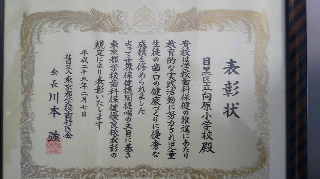 表彰状
目黒区立向原小学校殿
貴校は学校歯科保健の推進にあたり
教育的な実践活動に努力され児童
生徒の歯・口の健康づくりに優秀な
成績を修められました
よって
東京都学校歯科保健優良校表彰の
規定により表彰いたします
平成二十九年二月十日
東京都学校歯科医会
会長 川本 強